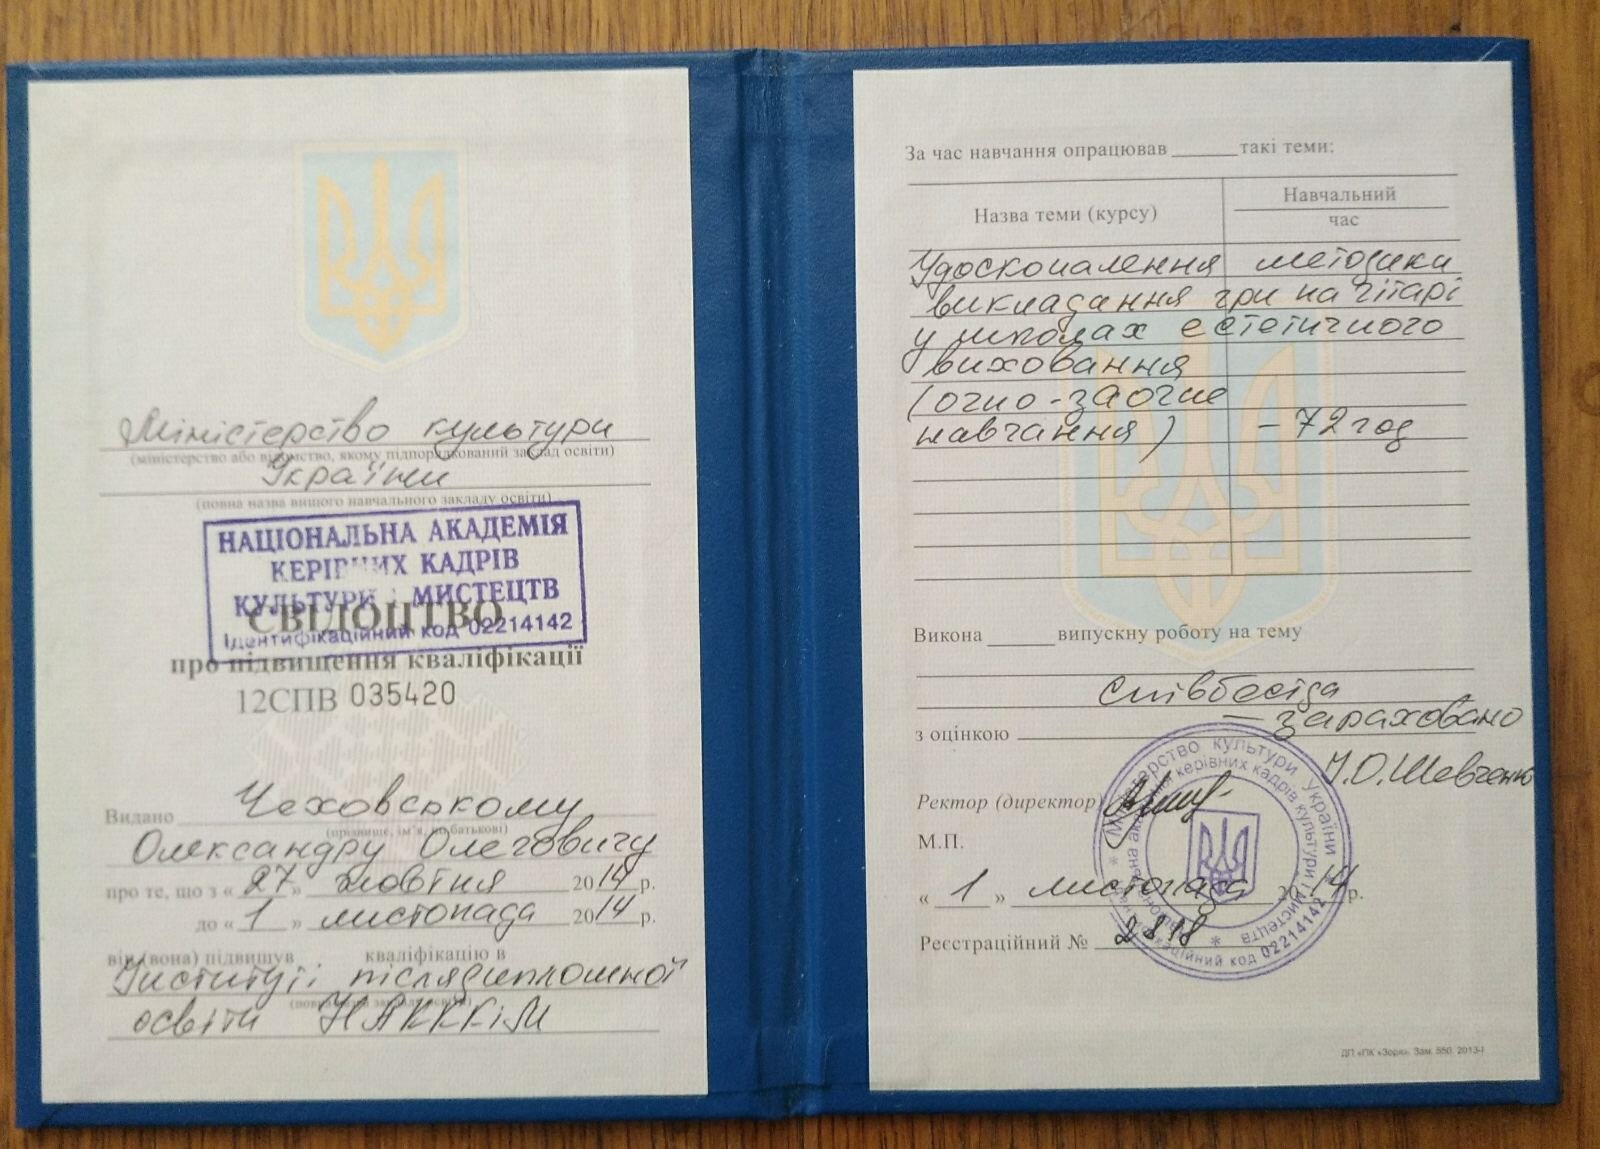 Міністерство культури
(міністерство або відомство, якому підпорядкований заклад освіти)
України
(повна назва вищого навчального закладу освіти)
НАЦІОНАЛЬНА АКАДЕМІЯ
КЕРІВНИХ КАДРІВ
КУЛЬТУРИ І МИСТЕЦТВ
Ідентифікаційний код 02214142
СВІДОЦТВО
про підвищення кваліфікації
12СПВ 035420
Видано Чеховському
(прізвище, ім’я, по батькові)
Олександру Олеговичу
про те, що з « 27 » жовтня 2014 р.
до « 1 » листопада 2014 р.
він (вона) підвищув кваліфікацію в
Інституті післядипломної
освіти НАКККіМ
За час навчання опрацював ______ такі теми:
Назва теми (курсу)
Навчальний
час
Удосконалення методики
викладання гри на гітарі
у школах естетичного
виховання
(очно-заочне
навчання) – 72 год
Викона ______ випускну роботу на тему
співбесіда
з оцінкою – зараховано
І.О.Шевченко
Ректор (директор)
М.П.
« 1 » листопада 2014 р.
Реєстраційний № 2818
Міністерство культури України
Національна академія керівних кадрів культури і мистецтв
Ідентифікаційний код 02214142
ДП «ПК «Зоря». Зам. 550. 2013-І